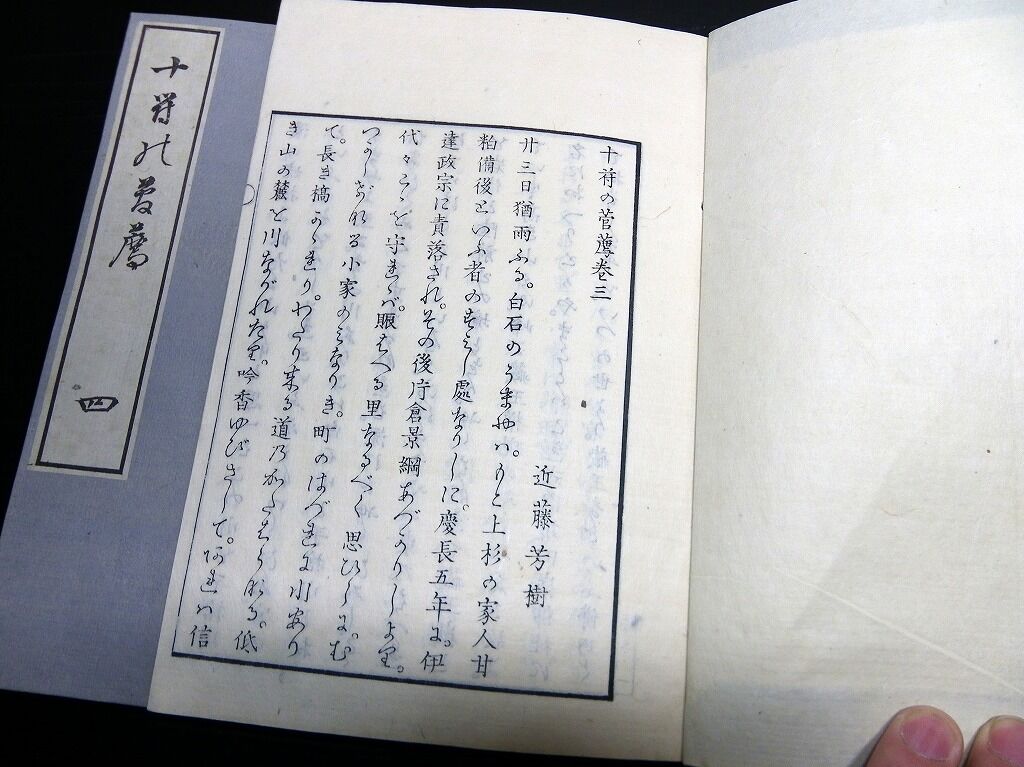 十符の菅薦巻三
近藤芳樹
廿三日猶雨ふる。白石のうまやハ。もと上杉の家人甘
粕備後といふ者のすみし處なりしに。慶長五年に。伊
達政宗に責落され。その後片倉景綱あづかりしより。
代々こゝを守れゝバ。賑はへる里なるべく思ひしに。む
つかしげなる小家のみなりき。町のはづれに川あり
て。長き橋かゝれり。わたり来る道のかたはらなる。低
き山の麓を川ながれたり。吟香ゆびさして。あれハ信
十符の菅薦
四